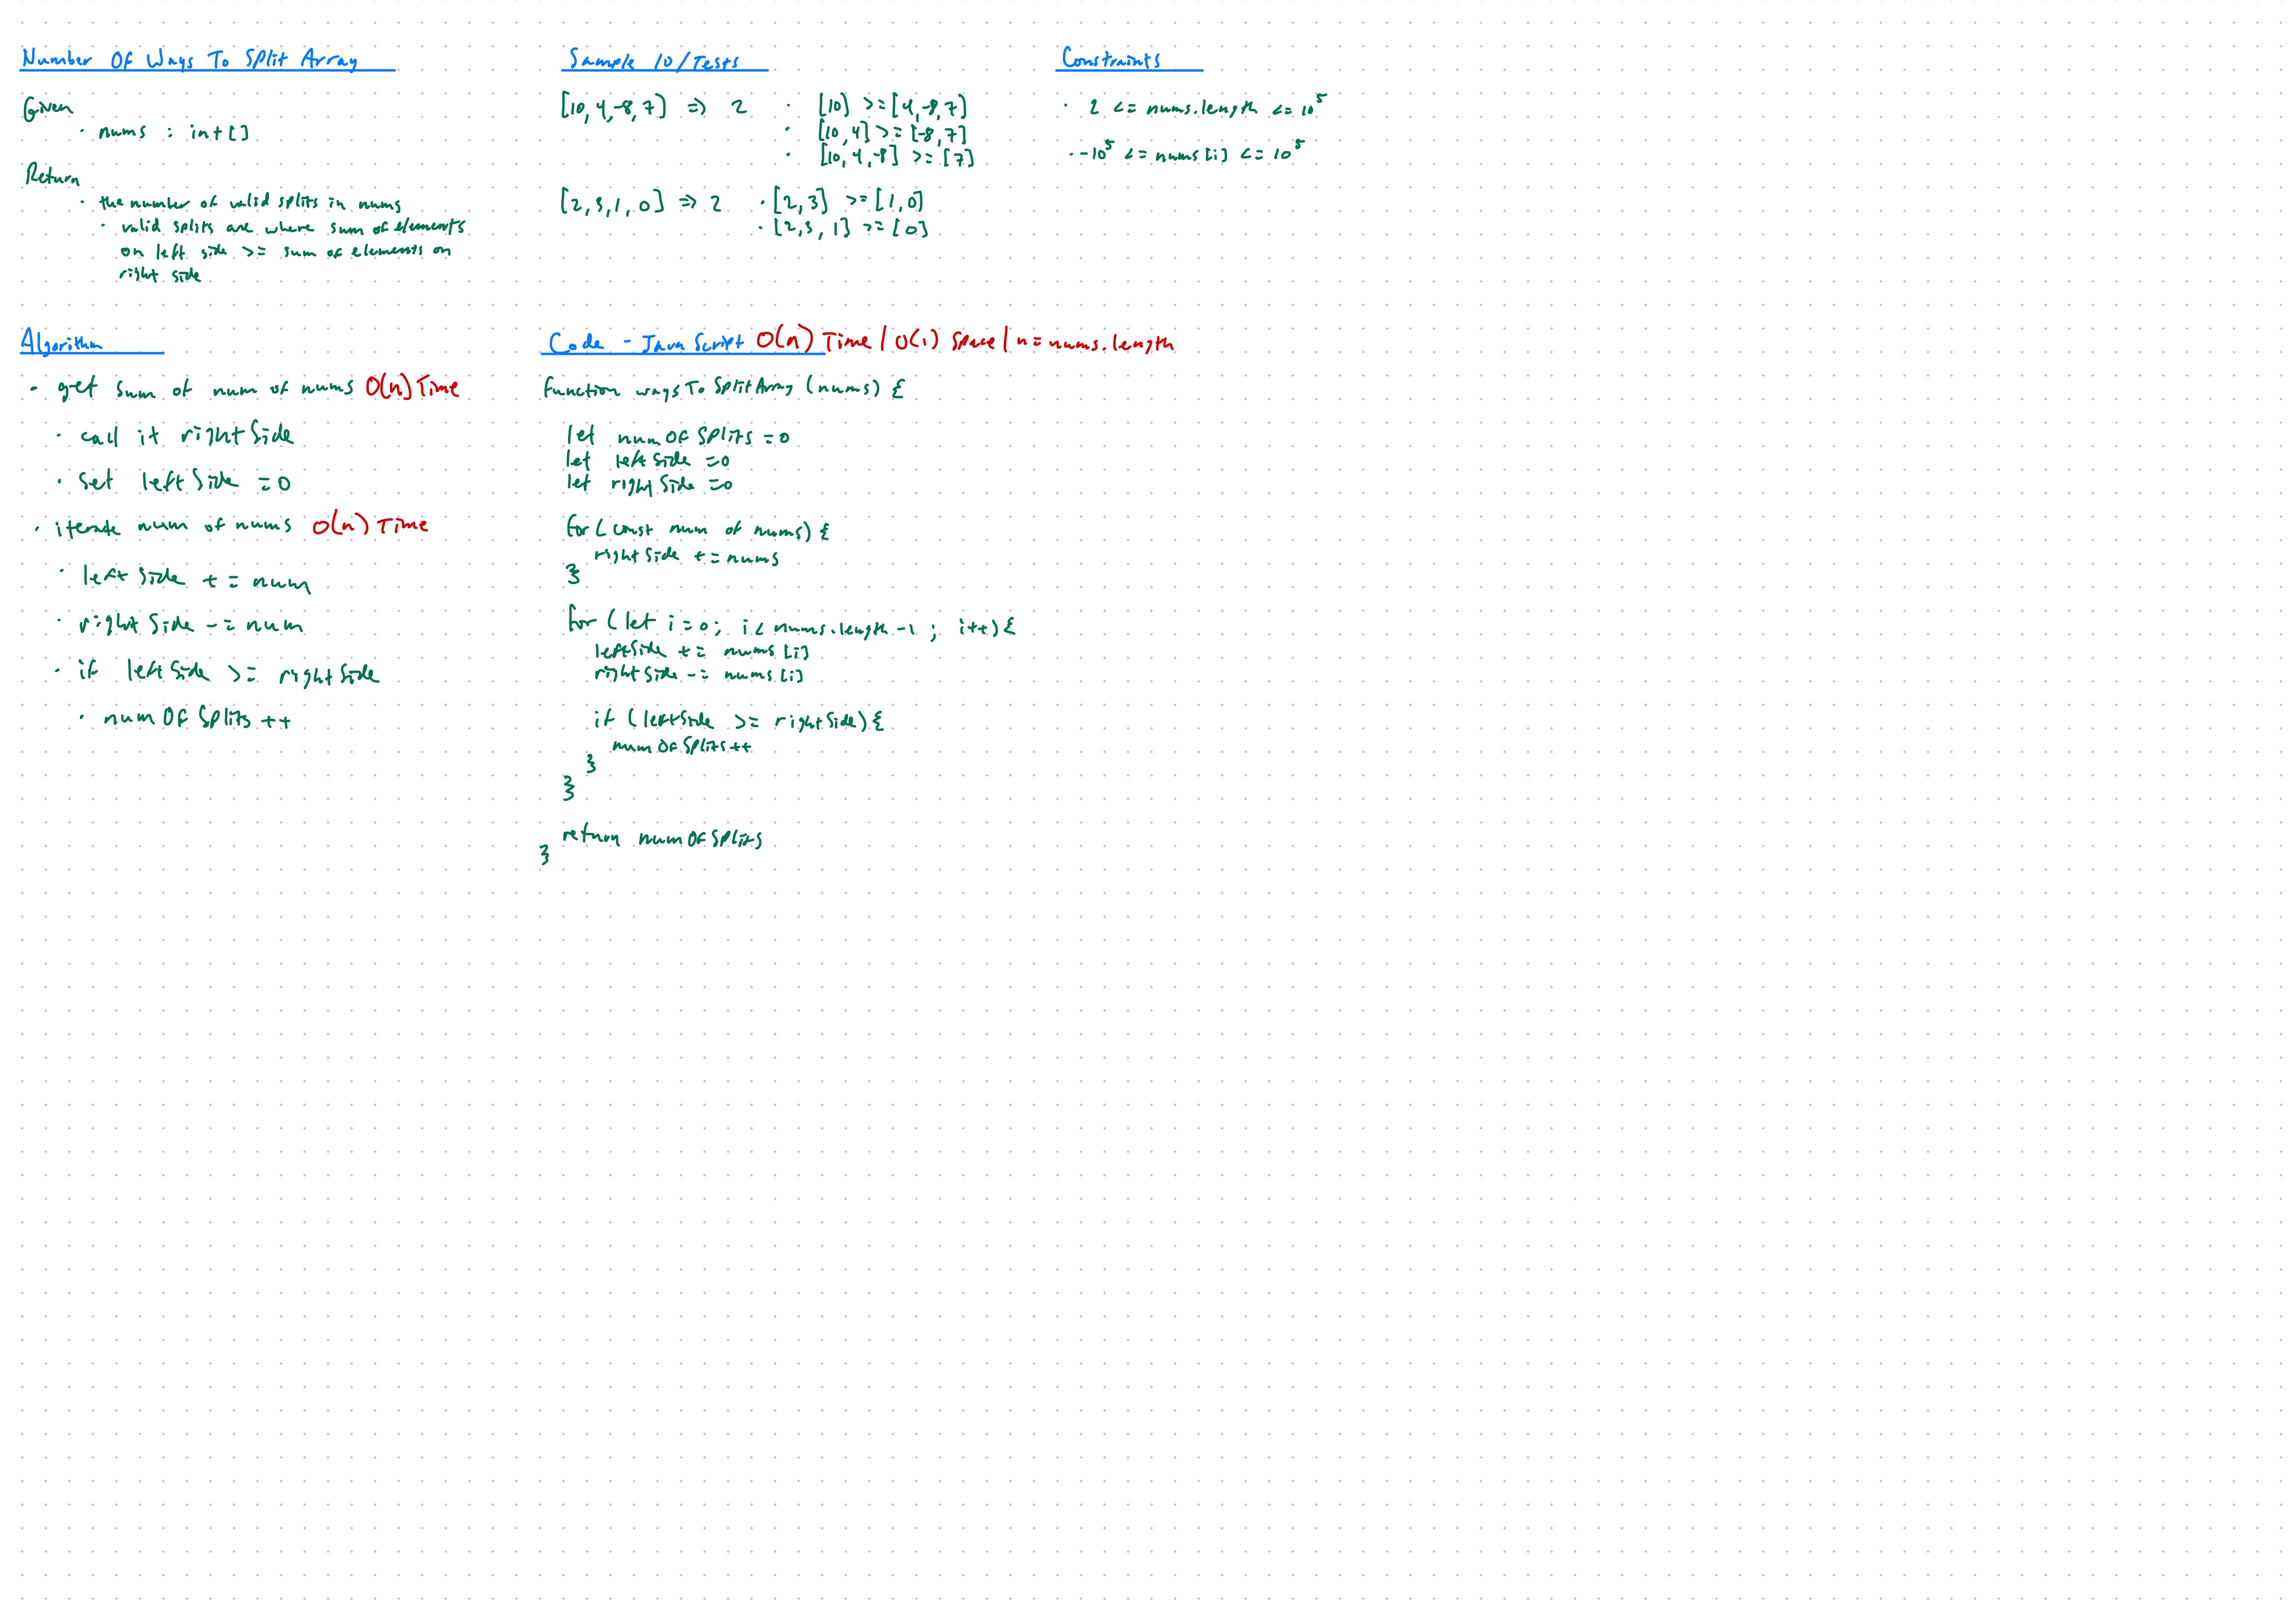 Number Of Ways To Split Array
Given
· nums : int[]
Return
· the number of valid splits in nums
· valid splits are where sum of elements
on left side >= sum of elements on
right side
Sample IO/Tests
[10,4,-8,7] => 2
· [10] >= [4,-8,7]
· [10,4] >= [-8,7]
· [10,4,-8] >= [7]
[2,3,1,0] => 2
· [2,3] >= [1,0]
· [2,3,1] >= [0]
Constraints
· 2 <= nums.length <= 10^5
· -10^5 <= nums[i] <= 10^5
Algorithm
· get sum of num of nums O(n) Time
· call it rightSide
· set leftSide = 0
· iterate num of nums O(n) Time
· leftSide += num
· rightSide -= num
· if leftSide >= rightSide
· numOfSplits++
Code - JavaScript O(n) Time / O(1) Space | n = nums.length
function waysToSplitArray (nums) {
let numOfSplits = 0
let leftSide = 0
let rightSide = 0
for (const num of nums) {
rightSide += nums
}
for (let i = 0; i < nums.length - 1; i++) {
leftSide += nums[i]
rightSide -= nums[i]
if (leftSide >= rightSide) {
numOfSplits++
}
}
return numOfSplits
}